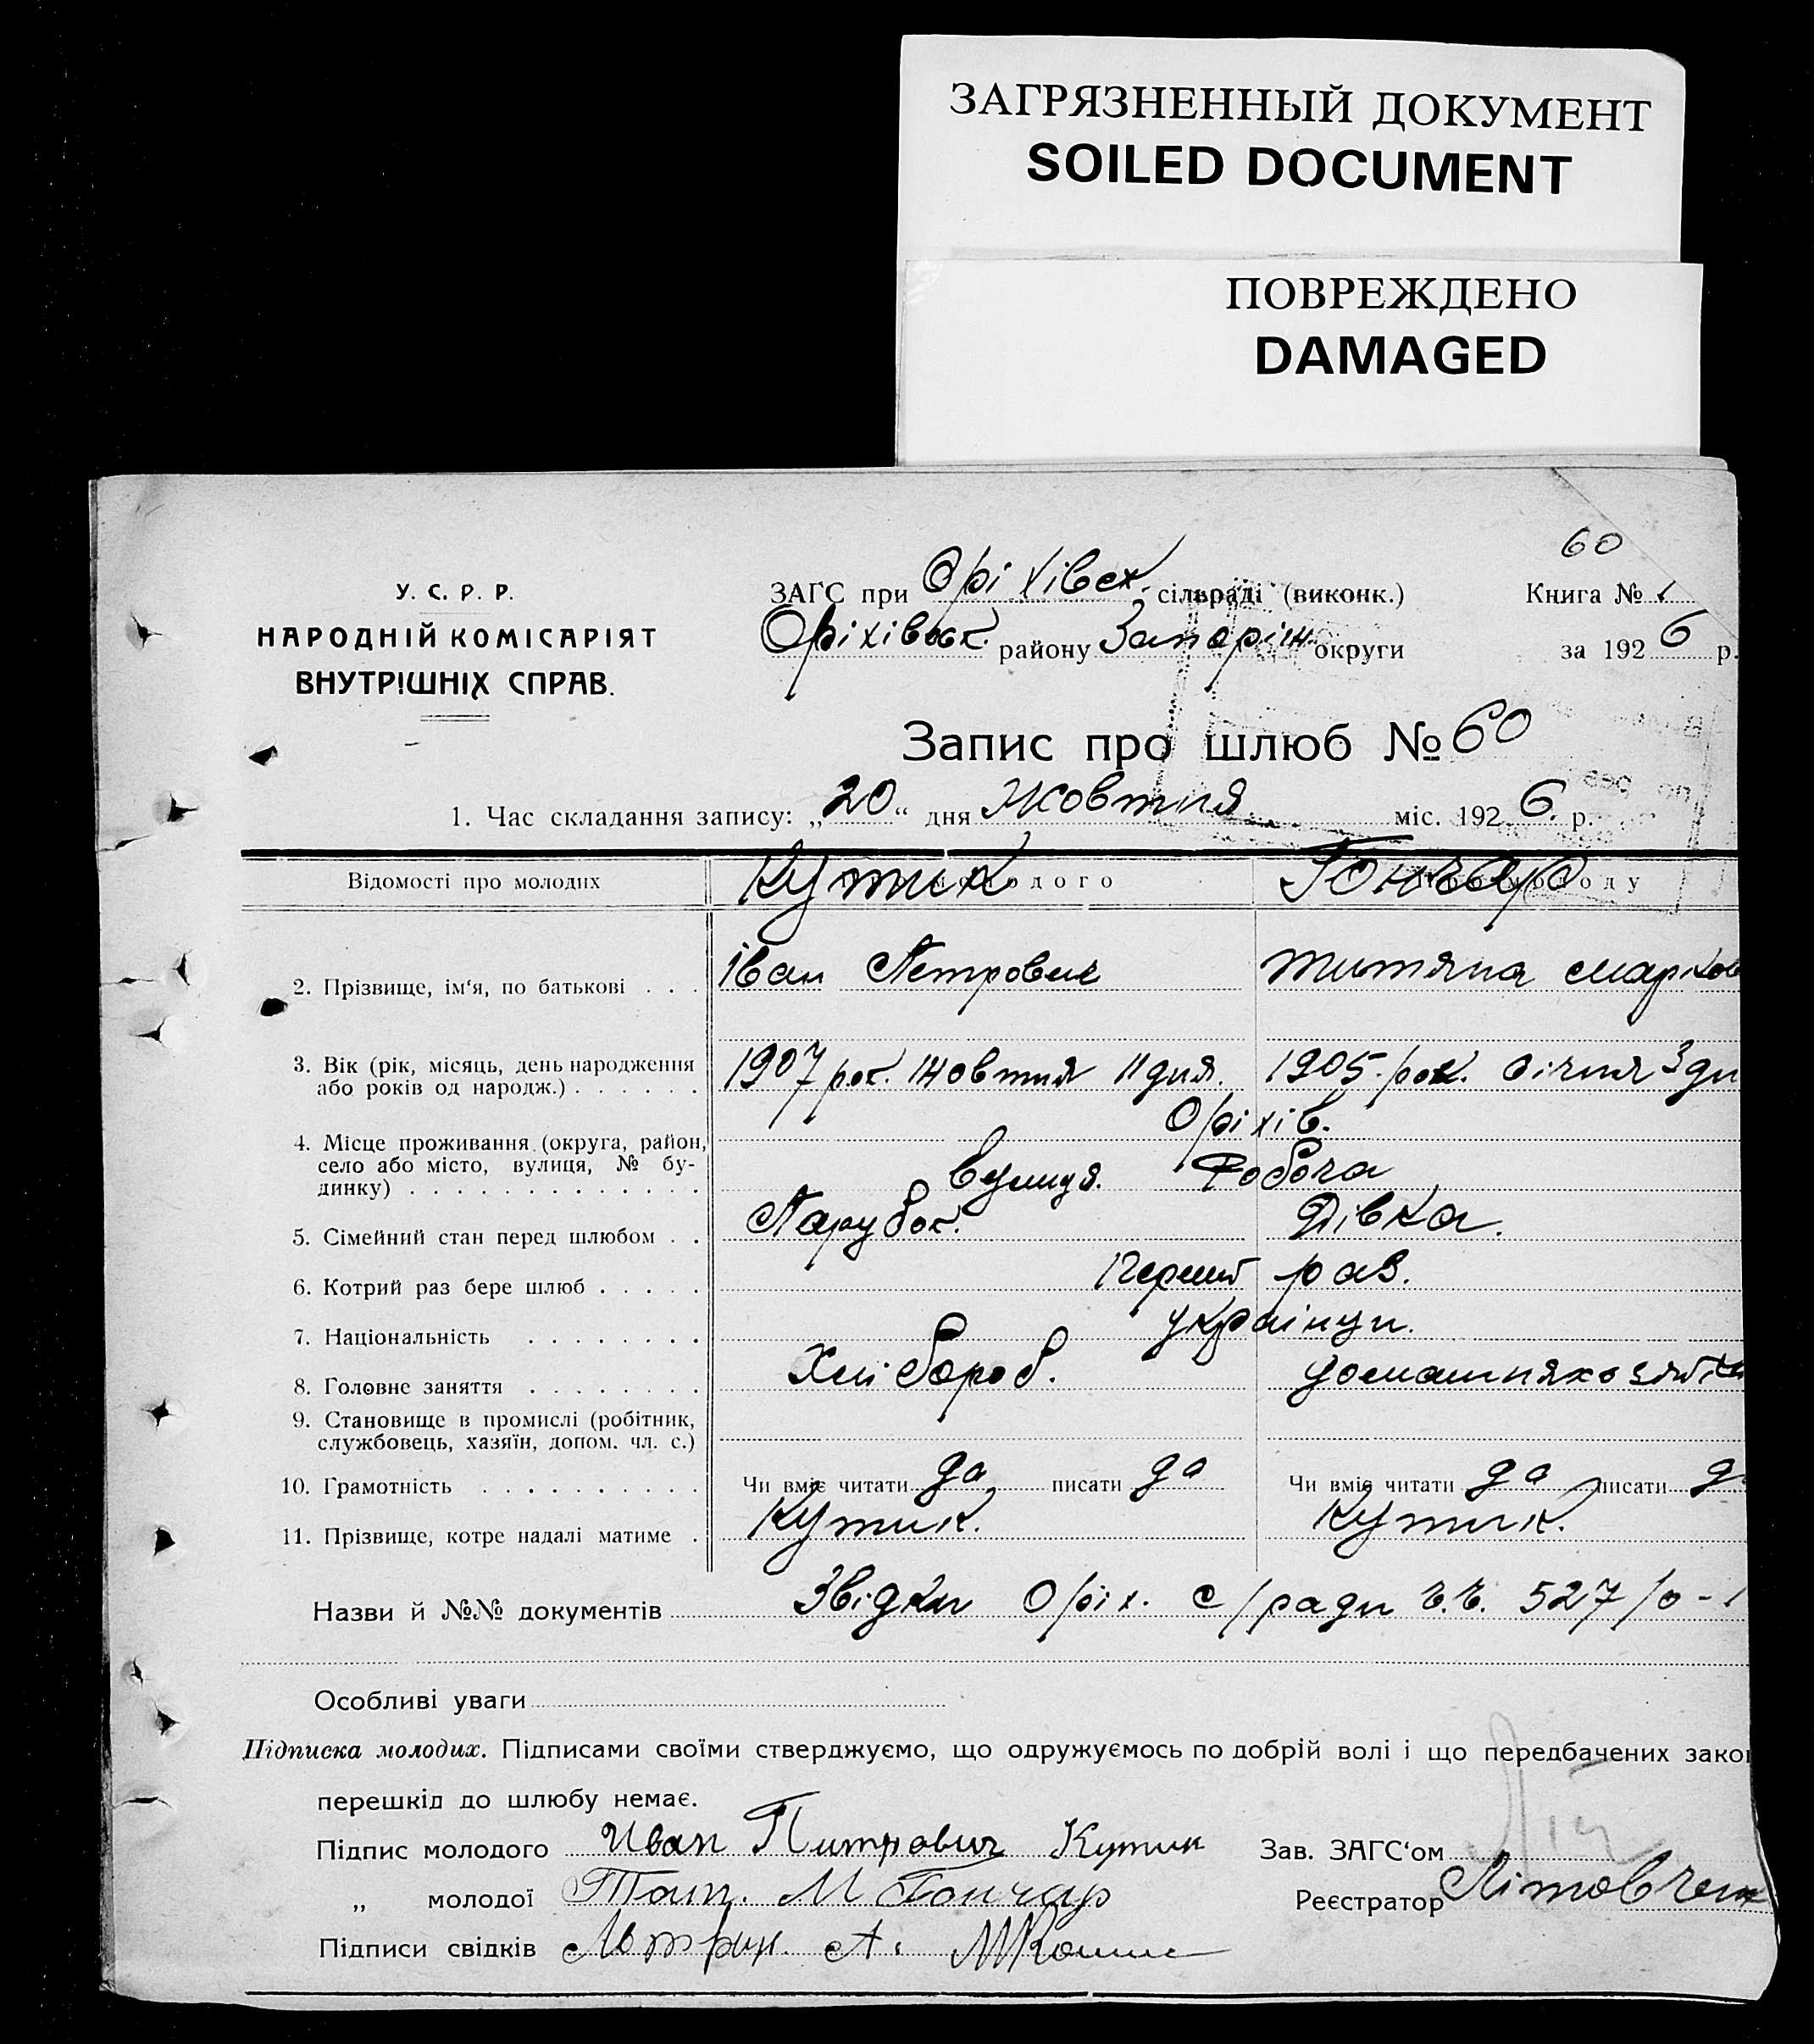 ЗАГРЯЗНЕННЫЙ ДОКУМЕНТ
SOILED DOCUMENT
ПОВРЕЖДЕНО
DAMAGED
60
У. С. Р. Р.
НАРОДНІЙ КОМІСАРІЯТ
ВНУТРІШНІХ СПРАВ.
ЗАГС при Оріхівськ. сільраді (виконк.)
Оріхівськ. району Запоріж. округи
Книга № 1
за 1926 р.
Запис про шлюб № 60
1. Час складання запису: „20“ дня Жовтня міс. 1926. р.
Відомості про молодих Кутик молодого Гончар молоду
2. Прізвище, ім‘я, по батькові . . . Іван Петрович Титяна Марков
3. Вік (рік, місяць, день народження
або років од народж.) . . . . . . 1907 рок. Жовтня 11 дня. 1905. рок. Січня 3 дн
Оріхів.
4. Місце проживання (округа, район,
село або місто, вулиця, № бу-
динку) . . . . . . . . . . . . . вулиця. Робоча
5. Сімейний стан перед шлюбом . . Парубок. Дівка.
6. Котрий раз бере шлюб . . . . . Перший раз.
7. Національність . . . . . . . . українци.
8. Головне заняття . . . . . . . . Хлібороб.
9. Становище в промислі (робітник,
службовець, хазяїн, допом. чл. с.)
10. Грамотність . . . . . . . . . . Чи вміє читати да писати да Чи вміє читати да писати д
11. Прізвище, котре надалі матиме . Кутик. Кутик.
Назви й №№ документів Звідки Оріх. с/ради ч.ч. 527/0-1
Особливі уваги
Підписка молодих. Підписами своїми стверджуємо, що одружуємось по добрій волі і що передбачених зако
перешкід до шлюбу немає.
Підпис молодого Иван Питрович Кутик Зав. ЗАГС‘ом
„ молодої Тат. М Гончар Реєстратор Літовчен
Підписи свідків